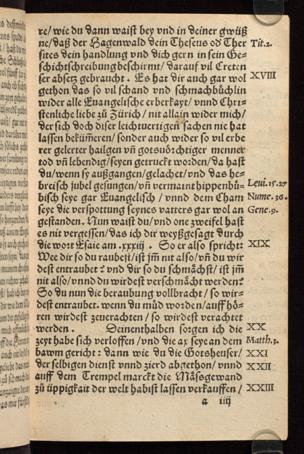 re/ wie du dann waist bey vnd in deiner gwüß
ne/ daß der Hagenwald dein Theseus od̕ Ther
sites dein handlung vnd dich gern in sein Ge-
schichtschreibung beschirmt/ darauf vil Creten
ser absetz gebraucht. Es hat dir auch gar wol
gethon das so vil schand vnd schmachbüchlin
wider alle Euangelische erberkayt/ vnnd Chri-
stenliche liebe zů Zürich/ nit allain wider mich/
der sich doch diser leichtuertigen sachen nie hat
lassen bekümern/ sonder auch wider so vil erbe
rer gelerter hailgen vn̄ gotsvörchtiger menner
tod vn̄ lebendig/ seyen getruckt worden/ da hast
du/ wenn sy außgangen/ gelachet/ vnd das he-
breisch jubel gesungen/ vn̄ vermaint hippenbů-
bisch seye gar Euangelisch/ vnnd dem Cham
seye die verspottung seynes vatters gar wol an
gestanden. Nun waist du/ vnd one zweifel hast
es nit vergessen/ das ich dir weyßgesagt durch
die wort Esaie am .xxxiij. So er also spricht
Wee dir so du raubest/ ist jm̄ nit also/ vn̄ du wir
dest entraubet? vnd dir so du schmächst/ ist jm̄
nit also/ vnnd du wirdest verschmächt werden?
So du nun die beraubung vollbracht/ so wir-
dest entraubet. wenn du můd worden/ auff hö
ren wirdest zeuerachten/ so wirdest verachtet
werden. Deinenthalben sorgen ich die
zeyt habe sich verloffen/ vnd die ax seye an dem
bawm gericht: dann wie du die Gotsheuser/
der selbigen dienst vnnd zierd abgethon/ vnnd
auff dem Trempel marckt die Mäßgewand
zů üppigkait der welt habist lassen verkauffen/
a iiij
Tit.2.
XVIII
Leui.15.27
Nume.36.
Gene.9.
XIX
XX
Matth.3.
XXI
XXII
XXIII